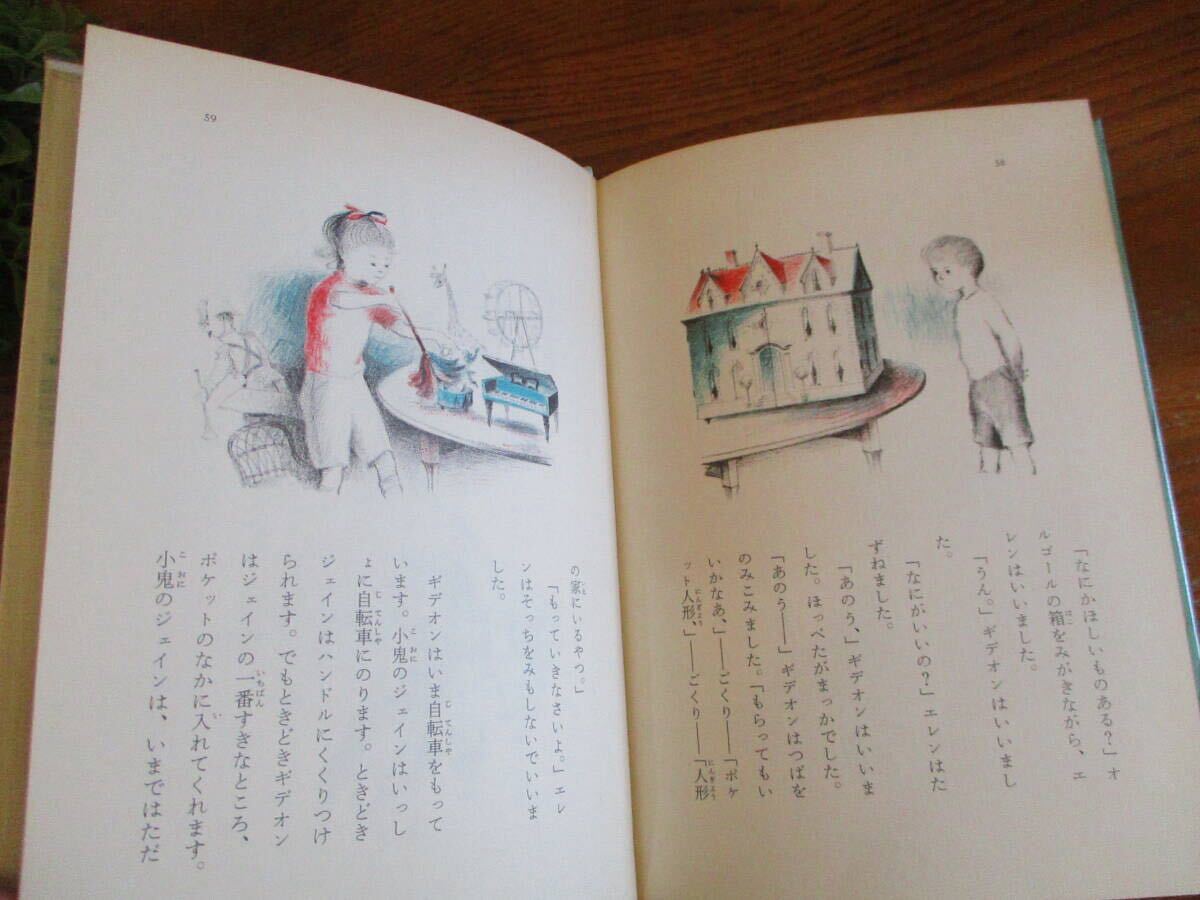 58
「なにかほしいものある？」オ
ルゴールの箱をみがきながら、エ
レンはいいました。
「うん。」ギデオンはいいまし
た。
「なにがいいの？」エレンはた
ずねました。
「あのう、」ギデオンはいいま
した。ほっぺたがまっかでした。
「あのう――」ギデオンはつばを
のみこみました。「もらってもい
いかなあ、――ごくり――「ポケ
ット人形、」――ごくり――「人形
59
の家にいるやつ。」
「もっていきなさいよ。」エレ
ンはそっちをみもしないでいいま
した。
ギデオンはいま自転車をもって
います。小鬼のジェインはいっし
ょに自転車にのります。ときどき
ジェインはハンドルにくくりつけ
られます。でもときどきギデオン
はジェインの一番すきなところ、
ポケットのなかに入れてくれます。
小鬼のジェインは、いまではただ